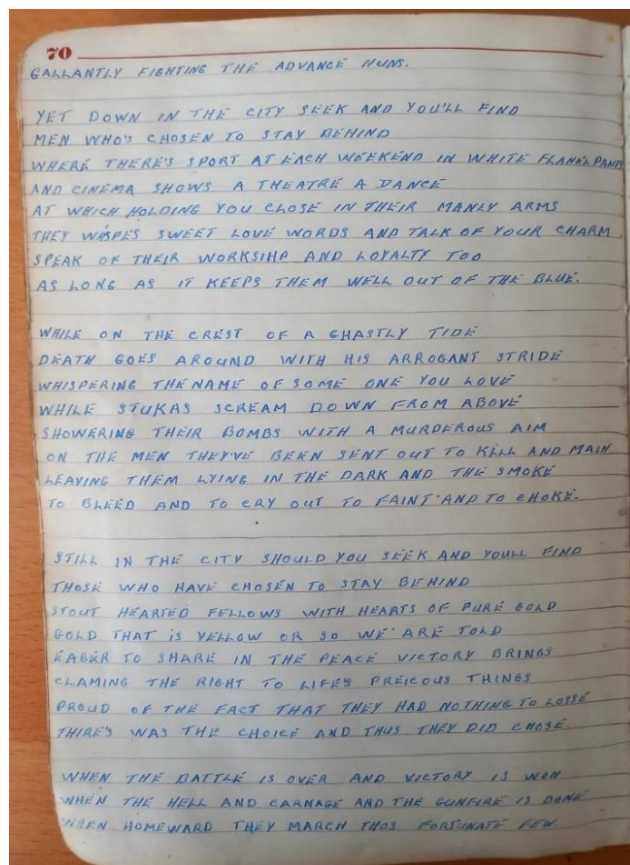 70
GALLANTLY FIGHTING THE ADVANCE HUNS.
YET DOWN IN THE CITY SEEK AND YOU'LL FIND
MEN WHO'S CHOSEN TO STAY BEHIND
WHERE THERE'S SPORT AT EACH WEEKEND IN WHITE FLANNEL PANTS
AND CINEMA SHOWS A THEATRE A DANCE
AT WHICH HOLDING YOU CLOSE IN THEIR MANLY ARMS
THEY WISPES SWEET LOVE WORDS AND TALK OF YOUR CHARM
SPEAK OF THEIR WORKSIHP AND LOYALTY TOO
AS LONG AS IT KEEPS THEM WELL OUT OF THE BLUE.
WHILE ON THE CREST OF A GHASTLY TIDE
DEATH GOES AROUND WITH HIS ARROGANT STRIDE
WHISPERING THE NAME OF SOME ONE YOU LOVE
WHILE STUKAS SCREAM DOWN FROM ABOVE
SHOWERING THEIR BOMBS WITH A MURDEROUS AIM
ON THE MEN THEY'VE BEEN SENT OUT TO KILL AND MAIN
LEAVING THEM LYING IN THE DARK AND THE SMOKE
TO BLEED AND TO CRY OUT TO FAINT AND TO CHOKE.
STILL IN THE CITY SHOULD YOU SEEK AND YOULL FIND
THOSE WHO HAVE CHOSEN TO STAY BEHIND
STOUT HEARTED FELLOWS WITH HEARTS OF PURE GOLD
GOLD THAT IS YELLOW OR SO WE ARE TOLD
EAGER TO SHARE IN THE PEACE VICTORY BRINGS
CLAMING THE RIGHT TO LIFE'S PREICOUS THINGS
PROUD OF THE FACT THAT THEY HAD NOTHING TO LOSSE
THIRE'S WAS THE CHOICE AND THUS THEY DID CHOSE.
WHEN THE BATTLE IS OVER AND VICTORY IS WON
WHEN THE HELL AND CARNAGE AND THE GUNFIRE IS DONE
WHEN HOMEWARD THEY MARCH THOS FORTUNATE FEW